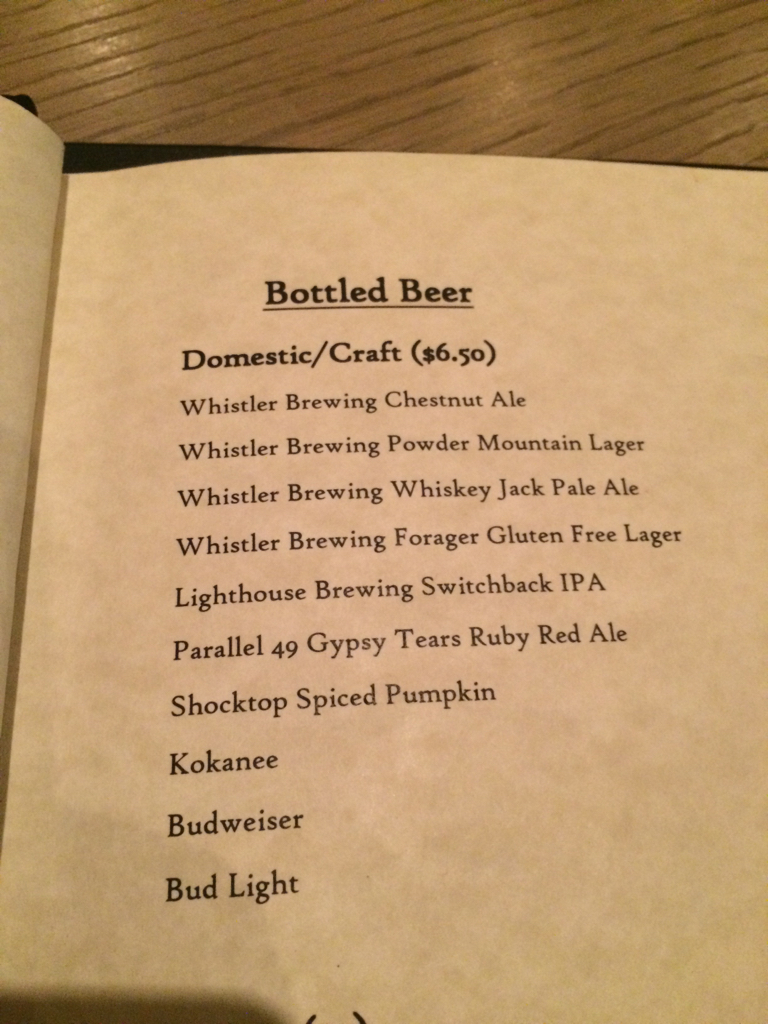 Bottled Beer
Domestic/Craft ($6.50)
Whistler Brewing Chestnut Ale
Whistler Brewing Powder Mountain Lager
Whistler Brewing Whiskey Jack Pale Ale
Whistler Brewing Forager Gluten Free Lager
Lighthouse Brewing Switchback IPA
Parallel 49 Gypsy Tears Ruby Red Ale
Shocktop Spiced Pumpkin
Kokanee
Budweiser
Bud Light